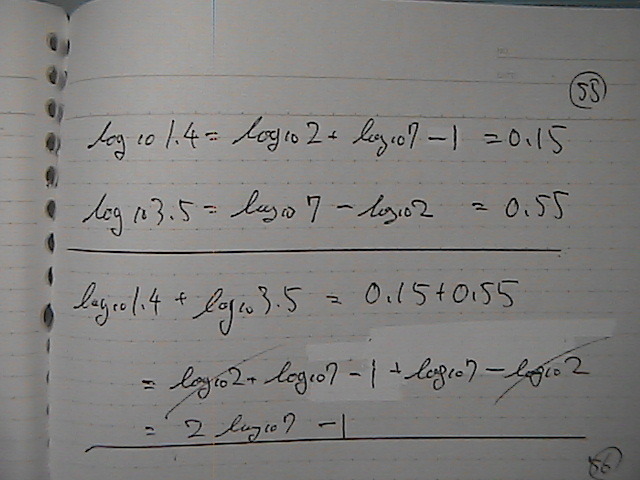 55
log₁₀1.4 = log₁₀2 + log₁₀7 - 1 = 0.15
log₁₀3.5 = log₁₀7 - log₁₀2 = 0.55
log₁₀1.4 + log₁₀3.5 = 0.15 + 0.55
= log₁₀2 + log₁₀7 - 1 + log₁₀7 - log₁₀2
= 2 log₁₀7 - 1
56